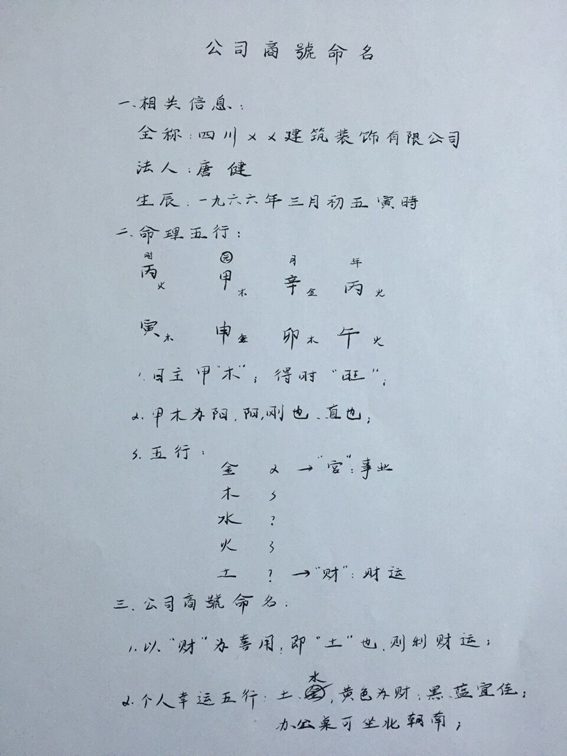 公司商號命名
一.相关信息：
全称：四川××建筑装饰有限公司
法人：唐健
生辰.一九六六年三月初五寅時
二.命理五行：
时 日 月 年
丙火 甲木 辛金 丙火
寅木 申金 卯木 午火
1.日主甲“木”；得时“旺”；
2.甲木为阳，阳，刚也、直也；
3.五行：
金 2 →“官”：事业
木 3
水 ?
火 3
土 ? →“财”：财运
三.公司商號命名.
1.以“财”为喜用，即“土”也，则利财运；
水
2.个人幸运五行：土，黄色为财，黑、蓝宜佳；
办公桌可坐北朝南；